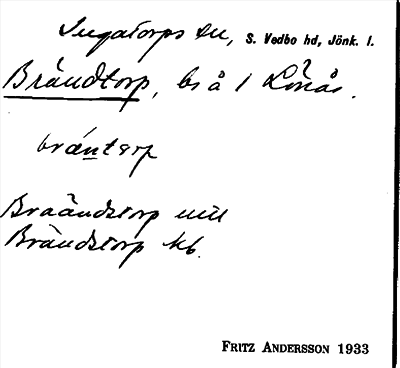 Ingatorps sn, S. Vedbo hd, Jönk. l.
Brändtorp, bs å 1 Lönås.
brántorp
Braändstorp
Brändstorp kb.
FRITZ ANDERSSON 1933